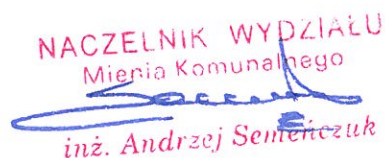 NACZELNIK WYDZIAŁU
Mienia Komunalnego
inż. Andrzej Semeńczuk